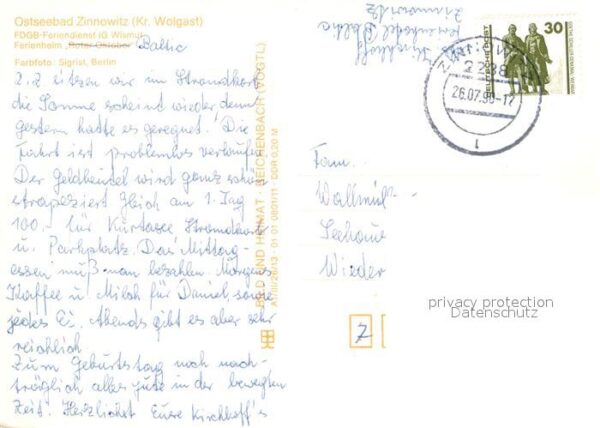 Ostseebad Zinnowitz (Kr. Wolgast)
FDGB-Feriendienst IG Wismut
Ferienheim „Roter Oktober" Baltic
Farbfoto: Sigrist, Berlin
z. Z. sitzen wir im Strandkorb
die Sonne scheint wieder denn
gestern hatte es geregnet. Die
Fahrt ist problemlos verlaufen.
Der Geldbeutel wird ganz schö
strapeziert gleich am 1. Tag
100,- für Kurtaxe Strandkorb
u. Parkplatz. Das Mittag-
essen muß man bezahlen. Morgens
Kaffee u. Milch für Daniel, sowie
jedes Ei. Abends gibt es aber sehr
reichlich
Zum Geburtstag noch nach-
träglich alles gute in der bewegten
Zeit. Herzlichst Eure Kirchhoff's
BILD UND HEIMAT · REICHENBACH (VOGTL)
A1/III/26/13 · 01 01 0801/11 · DDR 0,20 M
Kirchhoff
Ferienhotel Baltic
Zinnowitz
30
DEUTSCHE POST
2238
26.07.90-17
Fam.
Seehause
Wieder
Z
privacy protection
Datenschutz